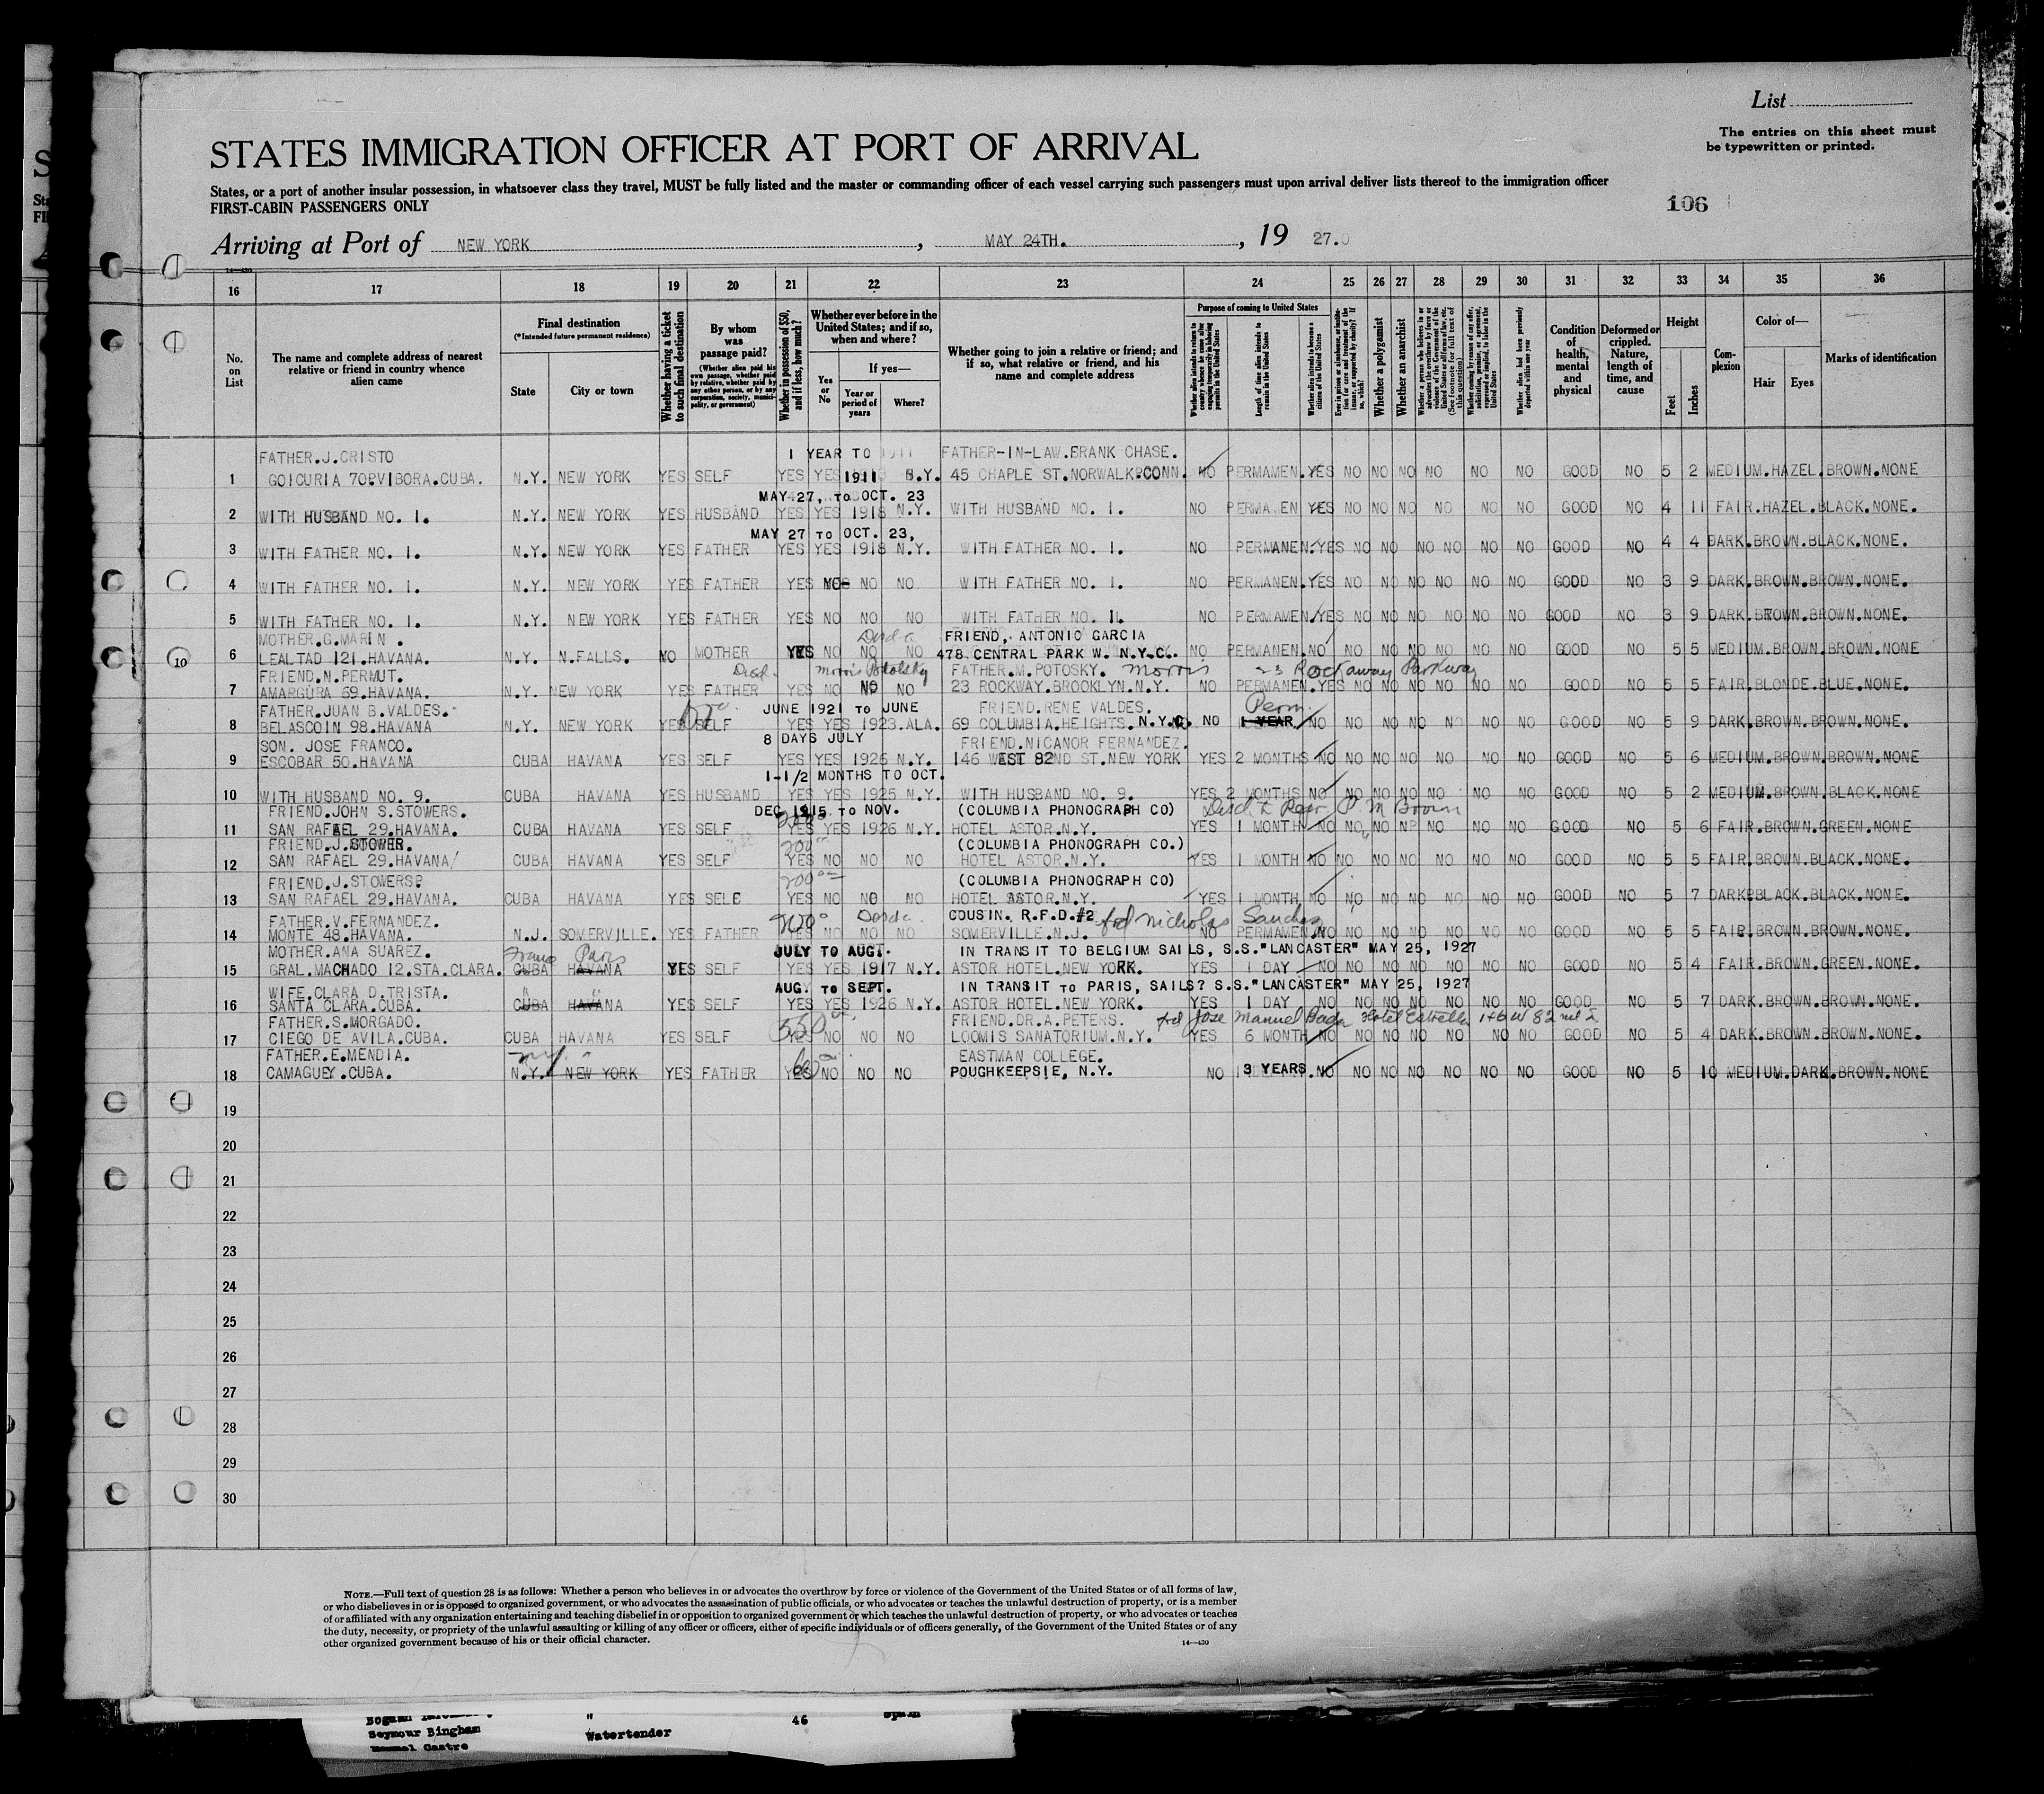 List
The entries on this sheet must
be typewritten or printed.
STATES IMMIGRATION OFFICER AT PORT OF ARRIVAL
States, or a port of another insular possession, in whatsoever class they travel, MUST be fully listed and the master or commanding officer of each vessel carrying such passengers must upon arrival deliver lists thereof to the immigration officer
FIRST-CABIN PASSENGERS ONLY
106
Arriving at Port of NEW YORK , MAY 24TH. , 19 27.
14-430
16 17 18 19 20 21 22 23 24 25 26 27 28 29 30 31 32 33 34 35 36
No. on List
The name and complete address of nearest relative or friend in country whence alien came
Final destination
(*Intended future permanent residence)
State
City or town
Whether having a ticket to such final destination
By whom was passage paid?
(Whether alien paid his own passage, whether paid by relative, whether paid by any other person, or by any corporation, society, municipality, or government)
Whether in possession of $50, and if less, how much?
Whether ever before in the United States; and if so, when and where?
Yes or No
If yes—
Year or period of years
Where?
Whether going to join a relative or friend; and if so, what relative or friend, and his name and complete address
Purpose of coming to United States
Length of time alien intends to remain in the United States
Whether alien intends to become a citizen of the United States
Whether a polygamist
Whether an anarchist
Condition of health, mental and physical
Deformed or crippled. Nature, length of time, and cause
Height
Feet
Inches
Complexion
Color of—
Hair
Eyes
Marks of identification
FATHER.J.CRISTO 1 YEAR TO 1911 FATHER-IN-LAW.FRANK CHASE.
1 GOICURIA 70.VIBORA.CUBA. N.Y. NEW YORK YES SELF YES YES 1911 N.Y. 45 CHAPLE ST.NORWALK.CONN. NO PERMAMEN.YES NO NO NO NO NO NO GOOD NO 5 2 MEDIUM.HAZEL.BROWN.NONE
MAY 27, TO OCT. 23
2 WITH HUSBAND NO. 1. N.Y. NEW YORK YES HUSBAND YES YES 1918 N.Y. WITH HUSBAND NO. 1. NO PERMAMEN YES NO NO NO NO NO NO GOOD NO 4 11 FAIR.HAZEL.BLACK.NONE.
MAY 27 TO OCT. 23,
3 WITH FATHER NO. 1. N.Y. NEW YORK YES FATHER YES YES 1918 N.Y. WITH FATHER NO. 1. NO PERMANEN.YES NO NO NO NO NO NO GOOD NO 4 4 DARK.BROWN.BLACK.NONE.
4 WITH FATHER NO. 1. N.Y. NEW YORK YES FATHER YES NO NO WITH FATHER NO. 1. NO PERMANEN.YES NO NO NO NO NO NO GOOD NO 3 9 DARK.BROWN.BROWN.NONE.
5 WITH FATHER NO. 1. N.Y. NEW YORK YES FATHER YES NO NO NO WITH FATHER NO. 1. NO PERMAMEN.YES NO NO NO NO NO NO GOOD NO 3 9 DARK.BROWN.BROWN.NONE.
MOTHER.G.MARIN . FRIEND, ANTONIO GARCIA
6 LEALTAD 121.HAVANA. N.Y. N.FALLS. NO MOTHER YES NO NO NO 478 CENTRAL PARK W. N.Y.C. NO PERMANEN.NO NO NO NO NO NO NO GOOD NO 5 5 MEDIUM.BROWN.BROWN.NONE
FRIEND.N.PERMUT. Morris Potolsky FATHER.M.POTOSKY. Morris 23 Rockaway Parkway
7 AMARGURA 69.HAVANA. N.Y. NEW YORK YES FATHER YES NO NO NO 23 ROCKWAY.BROOKLYN.N.Y. NO PERMANEN.YES NO NO NO NO NO NO GOOD NO 5 5 FAIR.BLONDE.BLUE.NONE.
FATHER.JUAN B.VALDES. JUNE 1921 TO JUNE FRIEND.RENE VALDES. Perm.
8 BELASCOIN 98.HAVANA N.Y. NEW YORK YES SELF YES YES 1923.ALA. 69 COLUMBIA.HEIGHTS. N.Y.C. NO 1 YEAR NO NO NO NO NO NO NO GOOD NO 5 9 DARK.BROWN.BROWN.NONE.
SON. JOSE FRANCO. 8 DAYS JULY FRIEND.NICANOR FERNANDEZ.
9 ESCOBAR 50.HAVANA CUBA HAVANA YES SELF YES YES 1926 N.Y. 146 WEST 82ND ST.NEW YORK YES 2 MONTHS NO NO NO NO NO NO NO GOOD NO 5 6 MEDIUM.BROWN.BROWN.NONE
1-1/2 MONTHS TO OCT.
10 WITH HUSBAND NO. 9. CUBA HAVANA YES HUSBAND YES YES 1925 N.Y. WITH HUSBAND NO. 9. YES 2 MONTHS NO NO NO NO NO NO NO GOOD NO 5 2 MEDIUM.BROWN.BLACK.NONE
FRIEND.JOHN S.STOWERS. DEC 1915 TO NOV. (COLUMBIA PHONOGRAPH CO)
11 SAN RAFAEL 29.HAVANA. CUBA HAVANA YES SELF YES YES 1926 N.Y. HOTEL ASTOR.N.Y. YES 1 MONTH NO NO NO NO NO NO NO GOOD NO 5 6 FAIR.BROWN.GREEN.NONE
FRIEND.J.STOWER. (COLUMBIA PHONOGRAPH CO.)
12 SAN RAFAEL 29.HAVANA/ CUBA HAVANA YES SELF YES NO NO NO HOTEL ASTOR.N.Y. YES 1 MONTH NO NO NO NO NO NO NO GOOD NO 5 5 FAIR.BROWN.BLACK.NONE.
FRIEND.J.STOWERS? 200 (COLUMBIA PHONOGRAPH CO)
13 SAN RAFAEL 29.HAVANA. CUBA HAVANA YES SELF YES NO NO NO HOTEL ASTOR.N.Y. YES 1 MONTH NO NO NO NO NO NO NO GOOD NO 5 7 DARK?BLACK.BLACK.NONE.
FATHER.V.FERNANDEZ. COUSIN. R.F.D.#2 Nicholas Sanchez
14 MONTE 48.HAVANA. N.J. SOMERVILLE. YES FATHER YES NO NO NO SOMERVILLE.N.J. NO PERMAMEN.NO NO NO NO NO NO NO GOOD NO 5 5 FAIR.BROWN.BROWN.NONE.
MOTHER.ANA SUAREZ. France Paris JULY TO AUG. IN TRANSIT TO BELGIUM SAILS, S.S."LANCASTER" MAY 25, 1927
15 GRAL.MACHADO 12.STA.CLARA. CUBA HAVANA YES SELF YES YES 1917 N.Y. ASTOR HOTEL.NEW YORK. YES 1 DAY NO NO NO NO NO NO NO GOOD NO 5 4 FAIR.BROWN.GREEN.NONE.
WIFE.CLARA D.TRISTA. " " AUG. TO SEPT. IN TRANSIT TO PARIS, SAILS? S.S."LANCASTER" MAY 25, 1927
16 SANTA CLARA.CUBA. CUBA HAVANA YES SELF YES YES 1926 N.Y. ASTOR HOTEL.NEW YORK. YES 1 DAY NO NO NO NO NO NO NO GOOD NO 5 7 DARK.BROWN.BROWN.NONE.
FATHER.S.MORGADO. FRIEND.DR.A.PETERS. Jose Manuel Hotel Estrella 146 W 82
17 CIEGO DE AVILA.CUBA. CUBA HAVANA YES SELF YES NO NO NO LOOMIS SANATORIUM.N.Y. YES 6 MONTH NO NO NO NO NO NO NO GOOD NO 5 4 DARK.BROWN.BROWN.NONE.
FATHER.E.MENDIA. EASTMAN COLLEGE.
18 CAMAGUEY.CUBA. N.Y. NEW YORK YES FATHER YES NO NO NO POUGHKEEPSIE, N.Y. NO 3 YEARS.NO NO NO NO NO NO NO GOOD NO 5 10 MEDIUM.DARK.BROWN.NONE
19
20
21
22
23
24
25
26
27
28
29
30
NOTE.—Full text of question 28 is as follows: Whether a person who believes in or advocates the overthrow by force or violence of the Government of the United States or of all forms of law,
or who disbelieves in or is opposed to organized government, or who advocates the assassination of public officials, or who advocates or teaches the unlawful destruction of property, or is a member
of or affiliated with any organization entertaining and teaching disbelief in or opposition to organized government or which teaches the unlawful destruction of property, or who advocates or teaches
the duty, necessity, or propriety of the unlawful assaulting or killing of any officer or officers, either of specific individuals or of officers generally, of the Government of the United States or of any
other organized government because of his or their official character.
14—430
46 Spain
Seymour Bingham Watertender
Castro